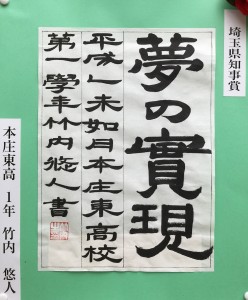 埼玉県知事賞
夢の實現
平成乚未如月本庄東高校
第一學年竹内悠人書
本庄東高 1年 竹内 悠人